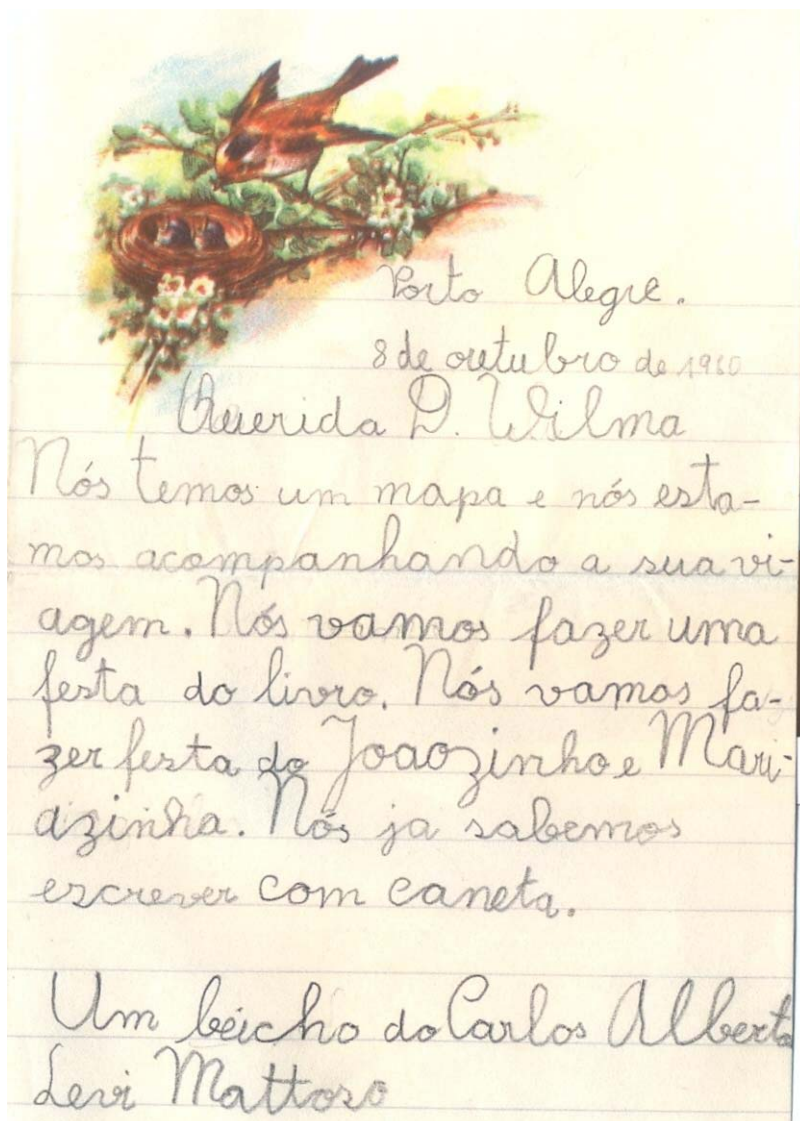 Porto Alegre.
8 de outubro de 1960
Querida D. Wilma
Nós temos um mapa e nós esta-
mos acompanhando a sua vi-
agem. Nós vamos fazer uma
festa do livro. Nós vamos fa-
zer festa do Joaozinho e Mari-
azinha. Nós ja sabemos
escrever com caneta.
Um beicho do Carlos Alberto
Levi Mattoso